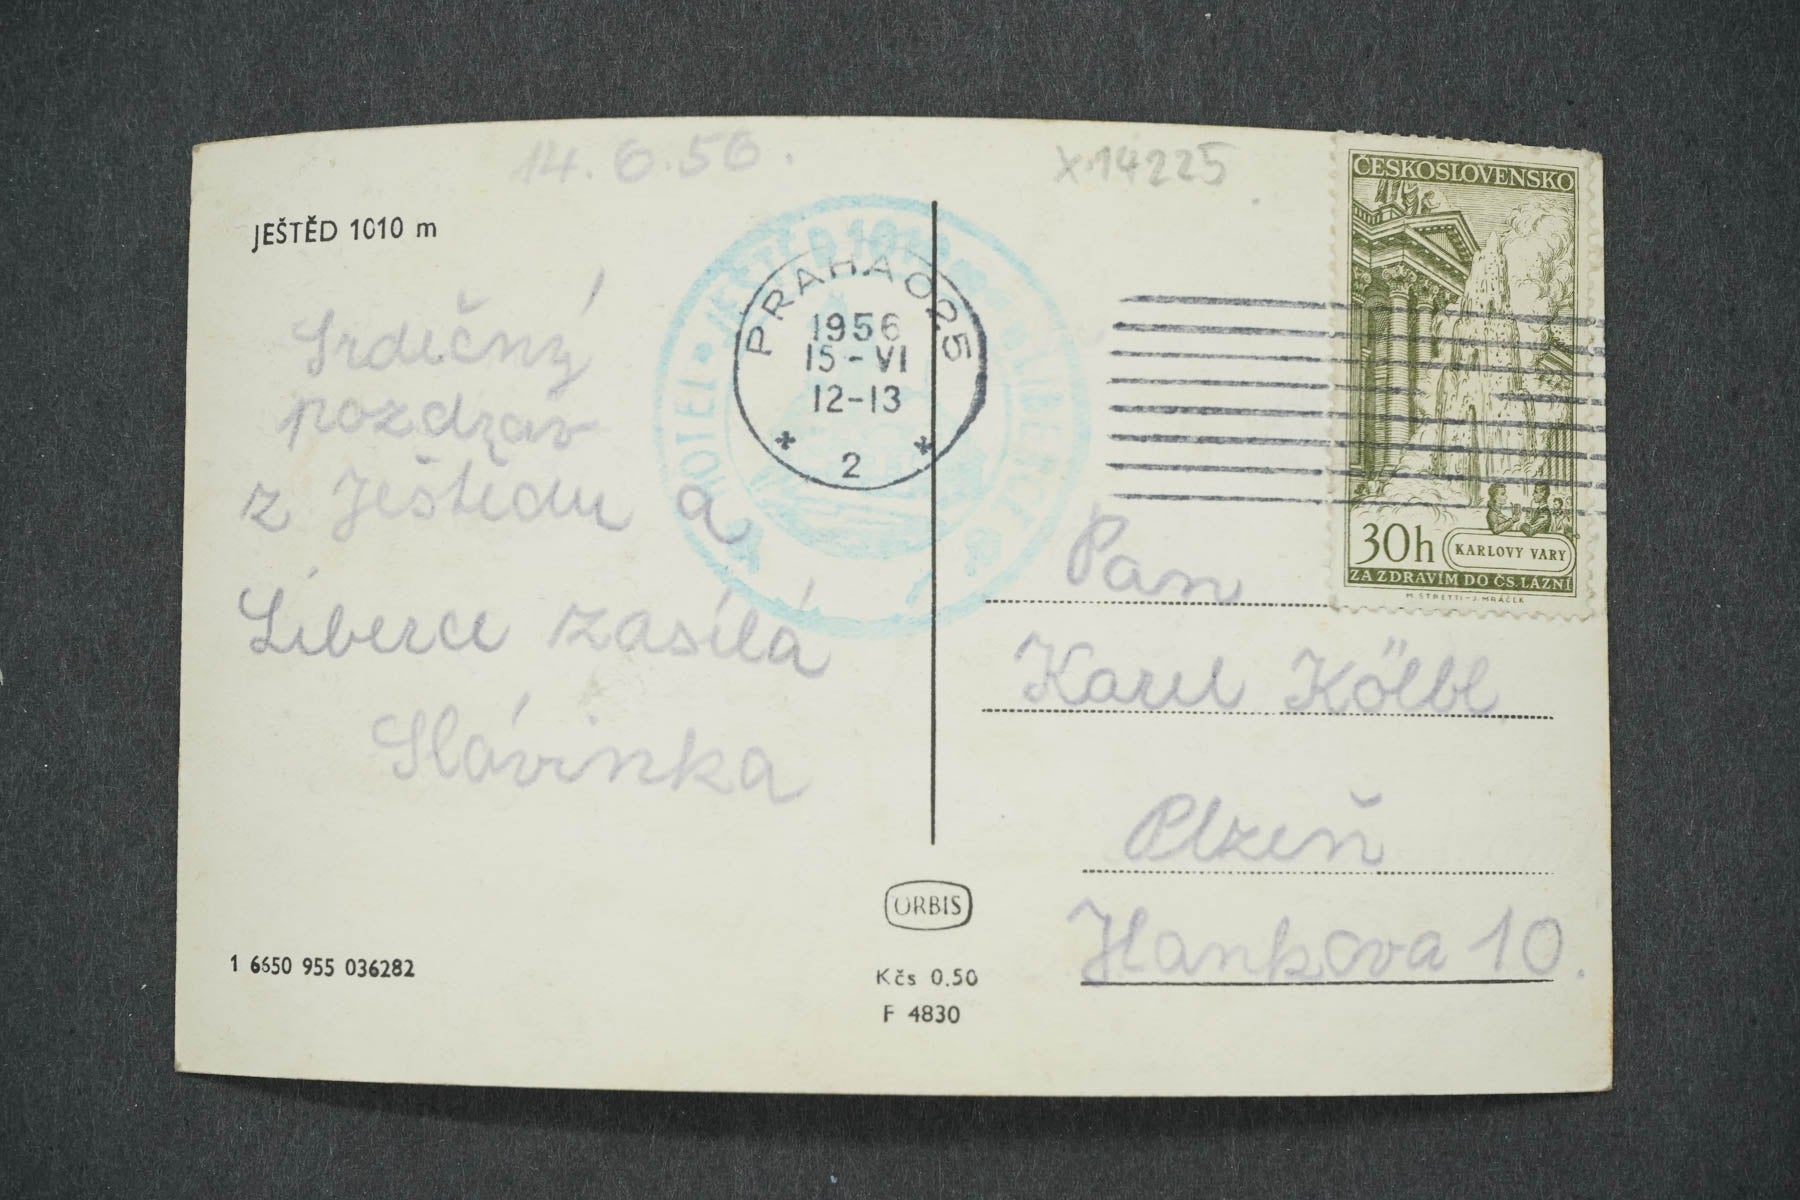 14. 6. 56.
JEŠTĚD 1010 m
Srdečný
pozdrav
z Ještědu a
Liberce zasílá
Slávinka
1 6650 955 036282
HOTEL • JEŠTĚD 1010 m • LIBEREC
PRAHA 025
1956
15-VI
12-13
* 2 *
ORBIS
Kčs 0.50
F 4830
x14225
ČESKOSLOVENSKO
30h
KARLOVY VARY
ZA ZDRAVÍM DO ČS. LÁZNÍ
M. ŠTRETTI-J. MRÁČEK
Pan
Karel Kölbl
Plzeň
Hankova 10.